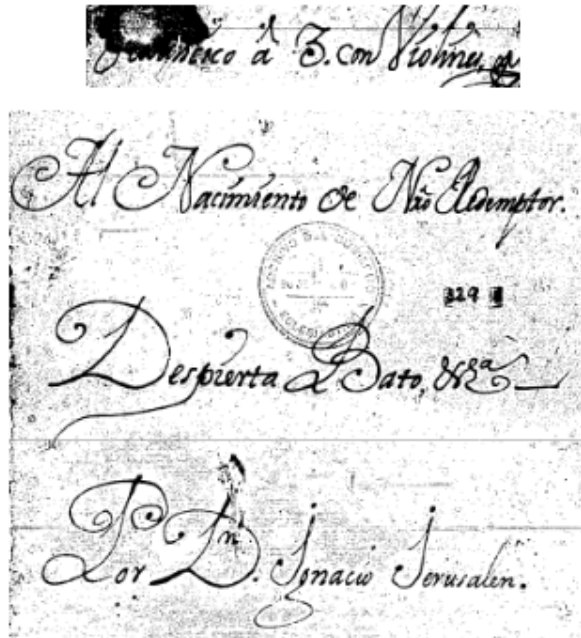 á 3. con Violines
Al Nacimiento de Nr̃o Redemptor.
329
Despierta Bato, &ª
Por Dⁿ. Ignacio Jerusalen.